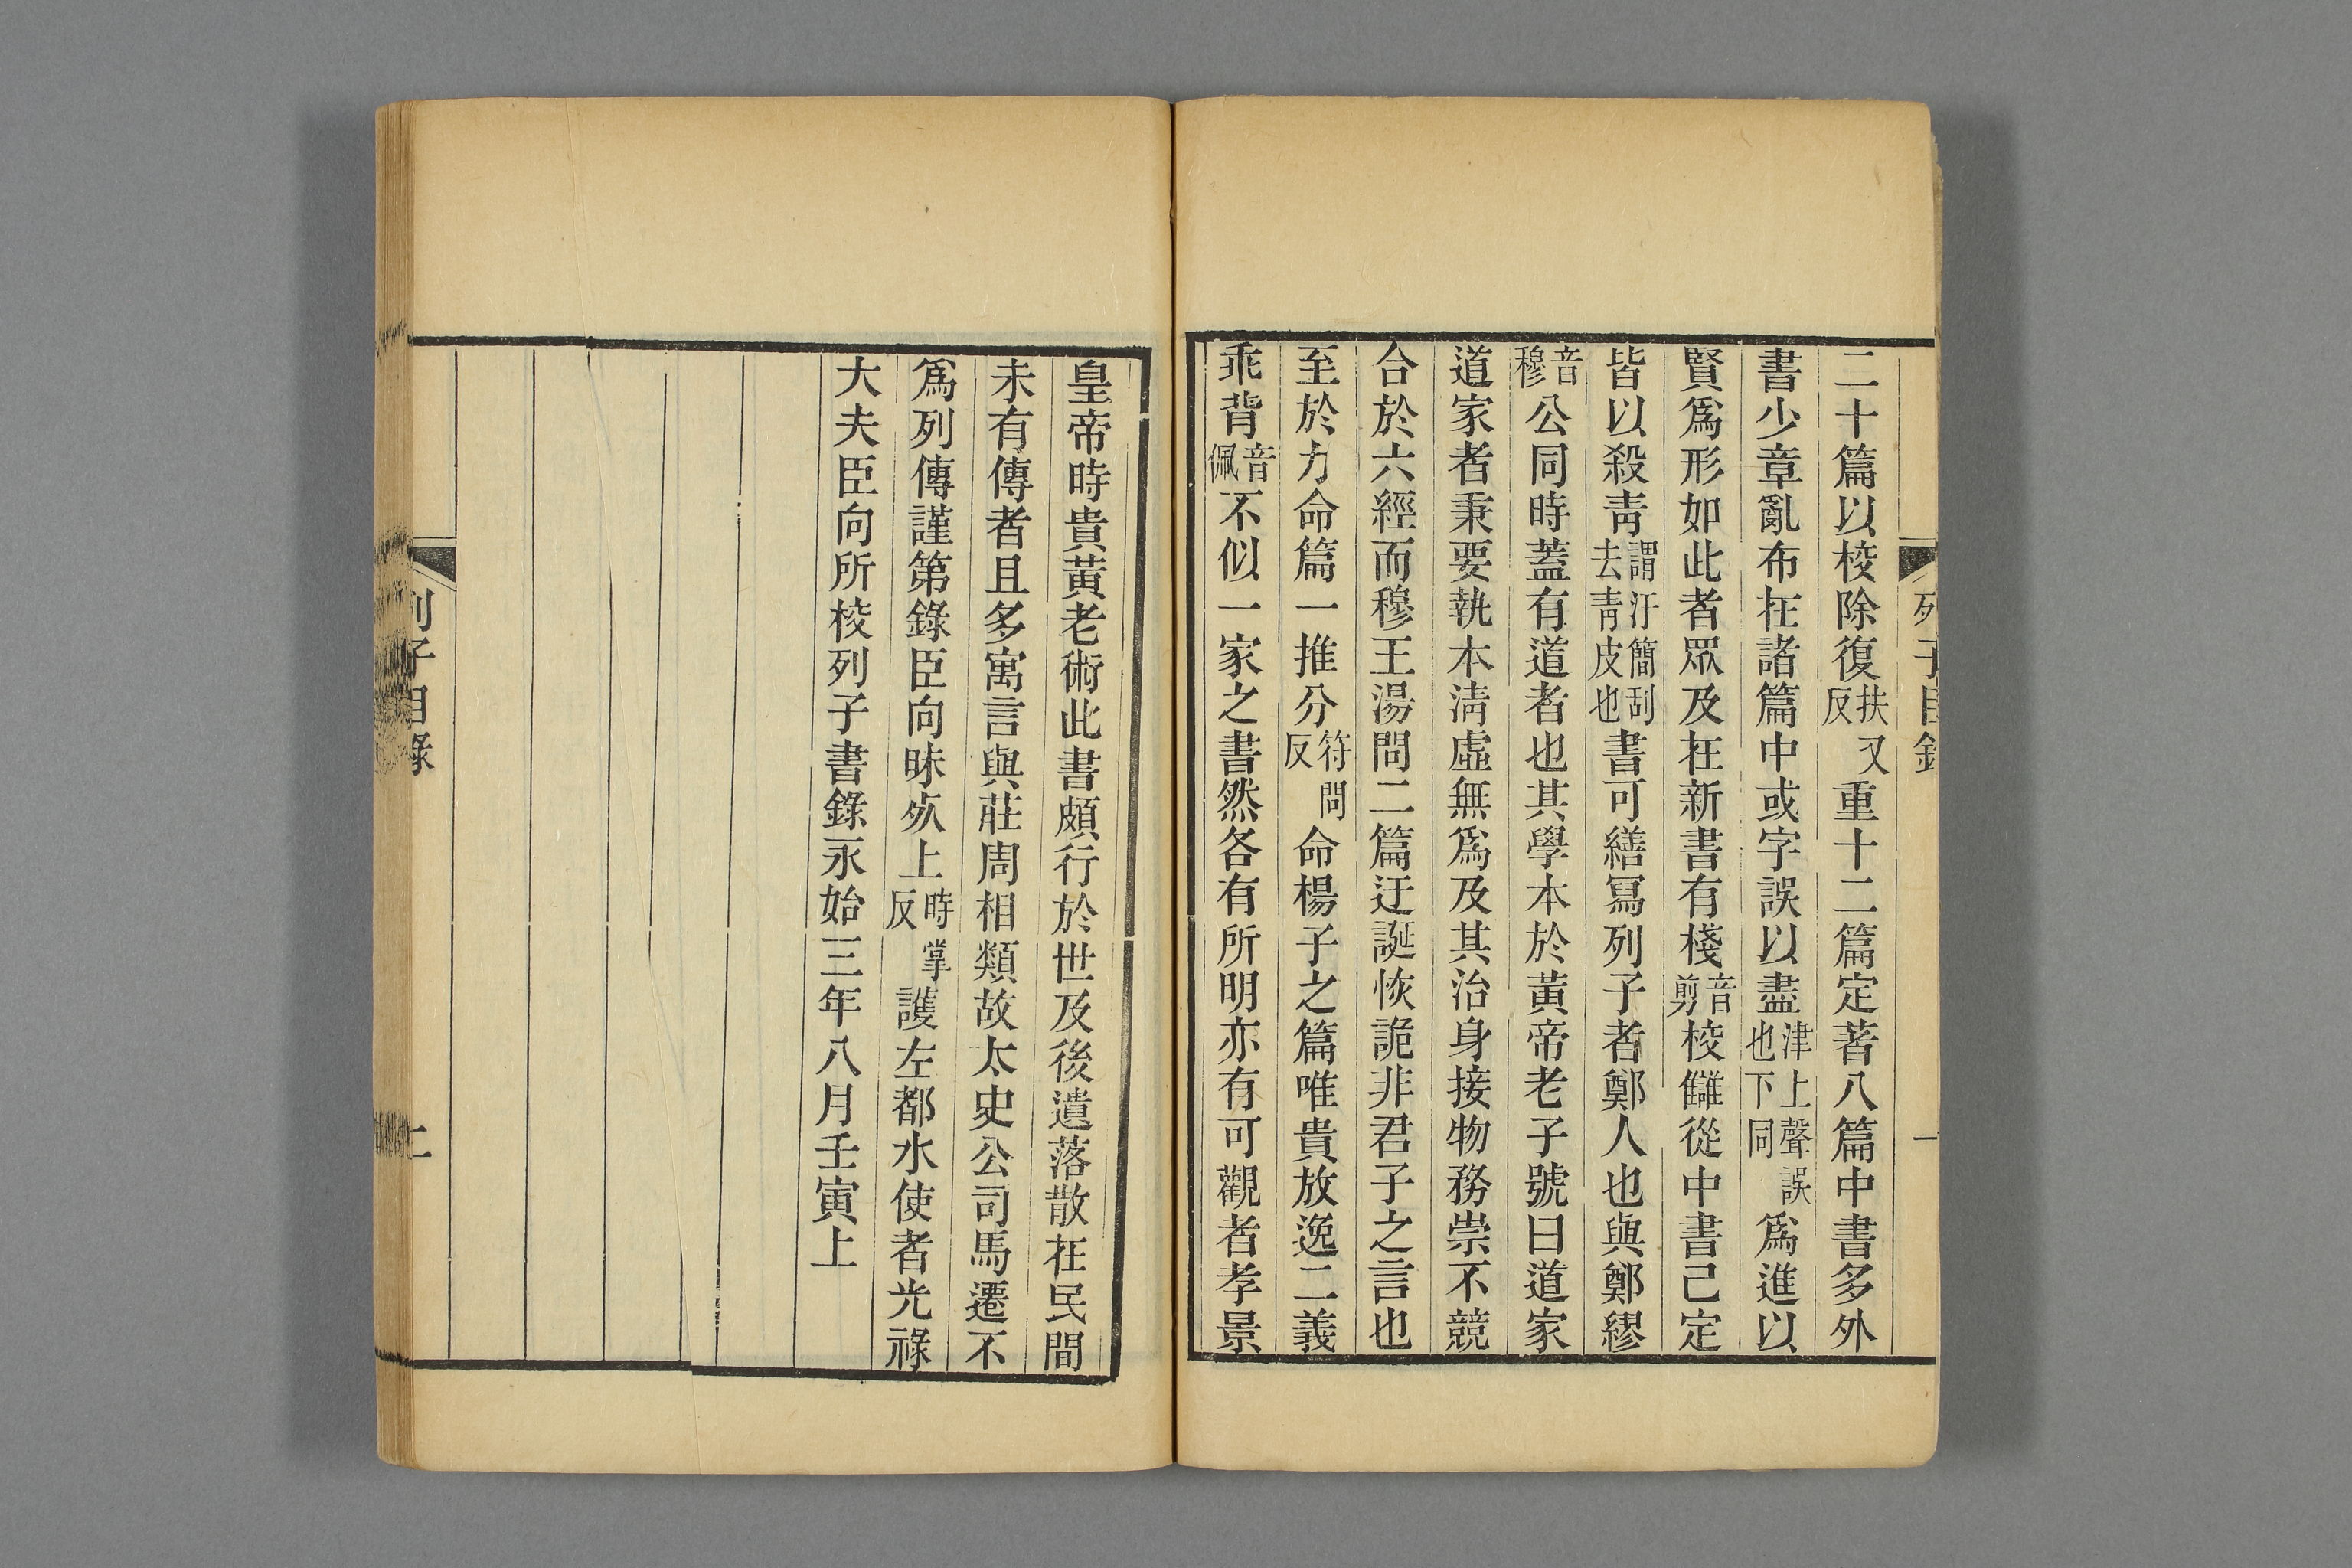 列子目錄
一
二十篇以校除復扶又反重十二篇定著八篇中書多外
書少章亂布在諸篇中或字誤以盡津上聲誤也下同爲進以
賢爲形如此者眾及在新書有棧音剪校讎從中書己定
皆以殺青謂汙簡刮去青皮也書可繕寫列子者鄭人也與鄭繆
音穆公同時蓋有道者也其學本於黃帝老子號曰道家
道家者秉要執本清虛無爲及其治身接物務崇不競
合於六經而穆王湯問二篇迂誕恢詭非君子之言也
至於力命篇一推分符問反命楊子之篇唯貴放逸二義
乖背音佩不似一家之書然各有所明亦有可觀者孝景
皇帝時貴黃老術此書頗行於世及後遺落散在民間
未有傳者且多寓言與莊周相類故太史公司馬遷不
爲列傳謹第錄臣向昧死上時掌反護左都水使者光祿
大夫臣向所校列子書錄永始三年八月壬寅上
列子目錄
二